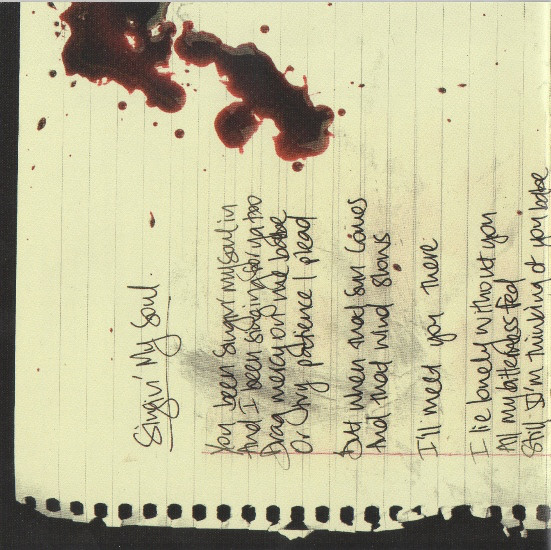 Singin' My Soul
You been Singin' my Soul in
And I been singin for ya too
Drag mercy on me babe
Or try patience I plead
But when that sun comes
And that wind blows
I'll meet you there
I lie lonely without you
All my bitterness fed
Still I'm thinking of you babe